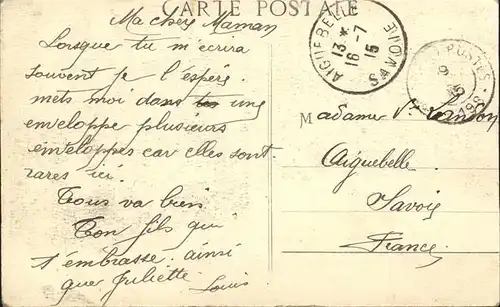 CARTE POSTALE
Ma chère Maman
Lorsque tu m'écrira
souvent je l'espère.
mets moi dans une
enveloppe plusieurs
enveloppes car elles sont
rares ici.
Tous va bien
Ton fils qui
t'embrasse ainsi
que Juliette
Louis
AIGUEBELLE
13 *
16 -7
15
SAVOIE
POSTES
198
Madame
Aiguebelle
Savoie
France